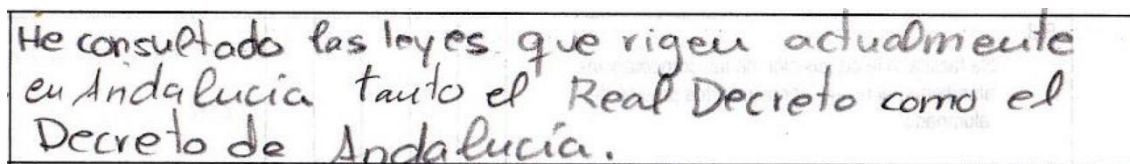 He consultado las leyes que rigen actualmente
en Andalucia tanto el Real Decreto como el
Decreto de Andalucía.